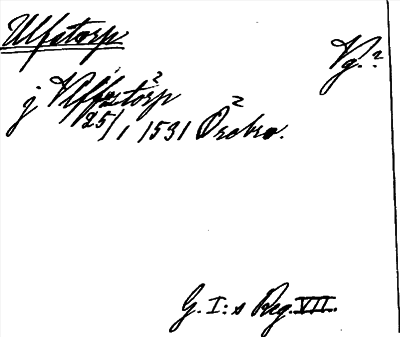 Ulfstorp
Vg.?
j Vlffstörp
25/1 1531 Örebro.
G. I:s Reg. VII.